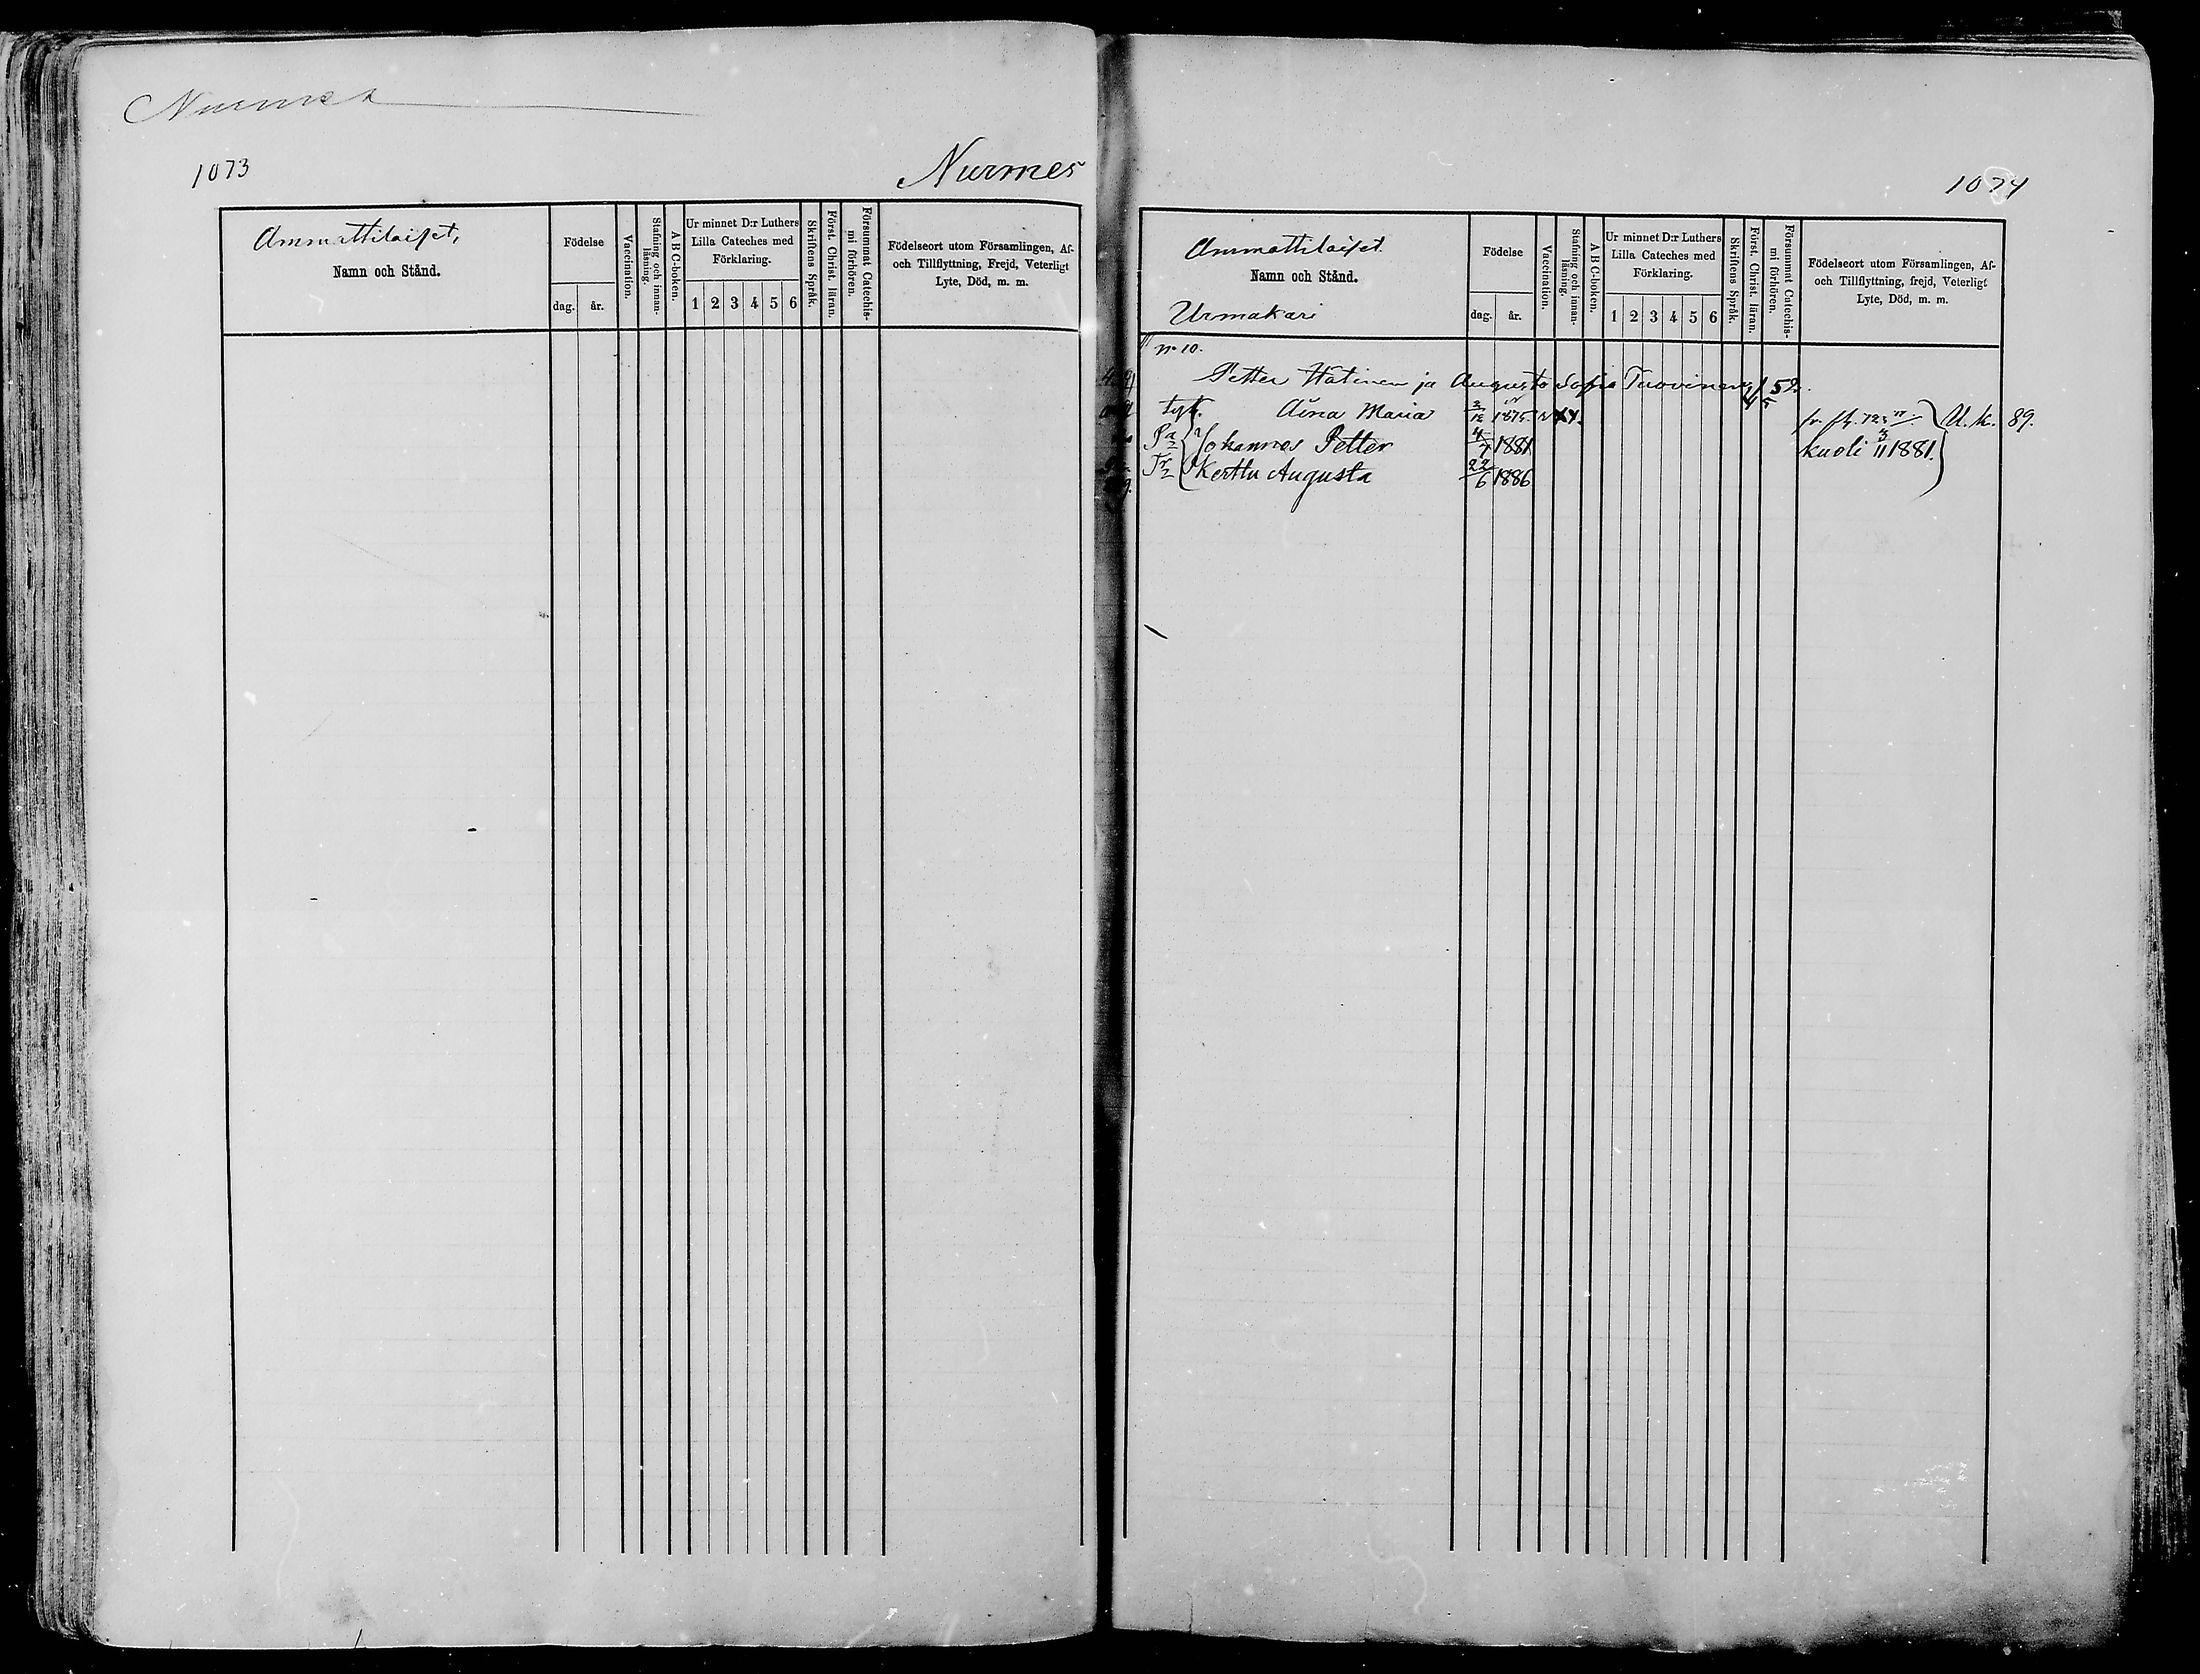 Nurmes
1073
Nurmes
Ammattilaiset,
Namn och Stånd.
Födelse
dag. år.
Vaccination.
Stafning och innan-
läsning.
A B C-boken.
Ur minnet D:r Luthers
Lilla Cateches med
Förklaring.
1 2 3 4 5 6
Skriftens Språk.
Först. Christ. läran.
Försummat Catechis-
mi förhören.
Födelseort utom Församlingen, Af-
och Tillflyttning, Frejd, Veterligt
Lyte, Död, m. m.
1074
Ammattilaiset.
Namn och Stånd.
Urmakari
Födelse
dag. år.
Vaccination.
Stafning och innan-
läsning.
A B C-boken.
Ur minnet D:r Luthers
Lilla Cateches med
Förklaring.
1 2 3 4 5 6
Skriftens Språk.
Först. Christ. läran.
Försummat Catechis-
mi förhören.
Födelseort utom Församlingen, Af-
och Tillflyttning, frejd, Veterligt
Lyte, Död, m. m.
No 10.
Petter Hätinen ja Augusta Sofia Tuovinen
tyt. Aina Maria 2/12 1875. U. k. 89.
Pa Johannes Petter 4/7 1881 kuoli 11 1881.
Tr Kerttu Augusta 22/6 1886